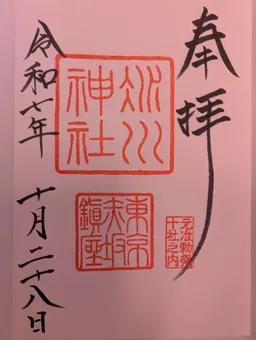 奉拝
元准勅祭
十社之内
氷川
神社
東京
赤坂
鎮座
令和七年
十月二十八日